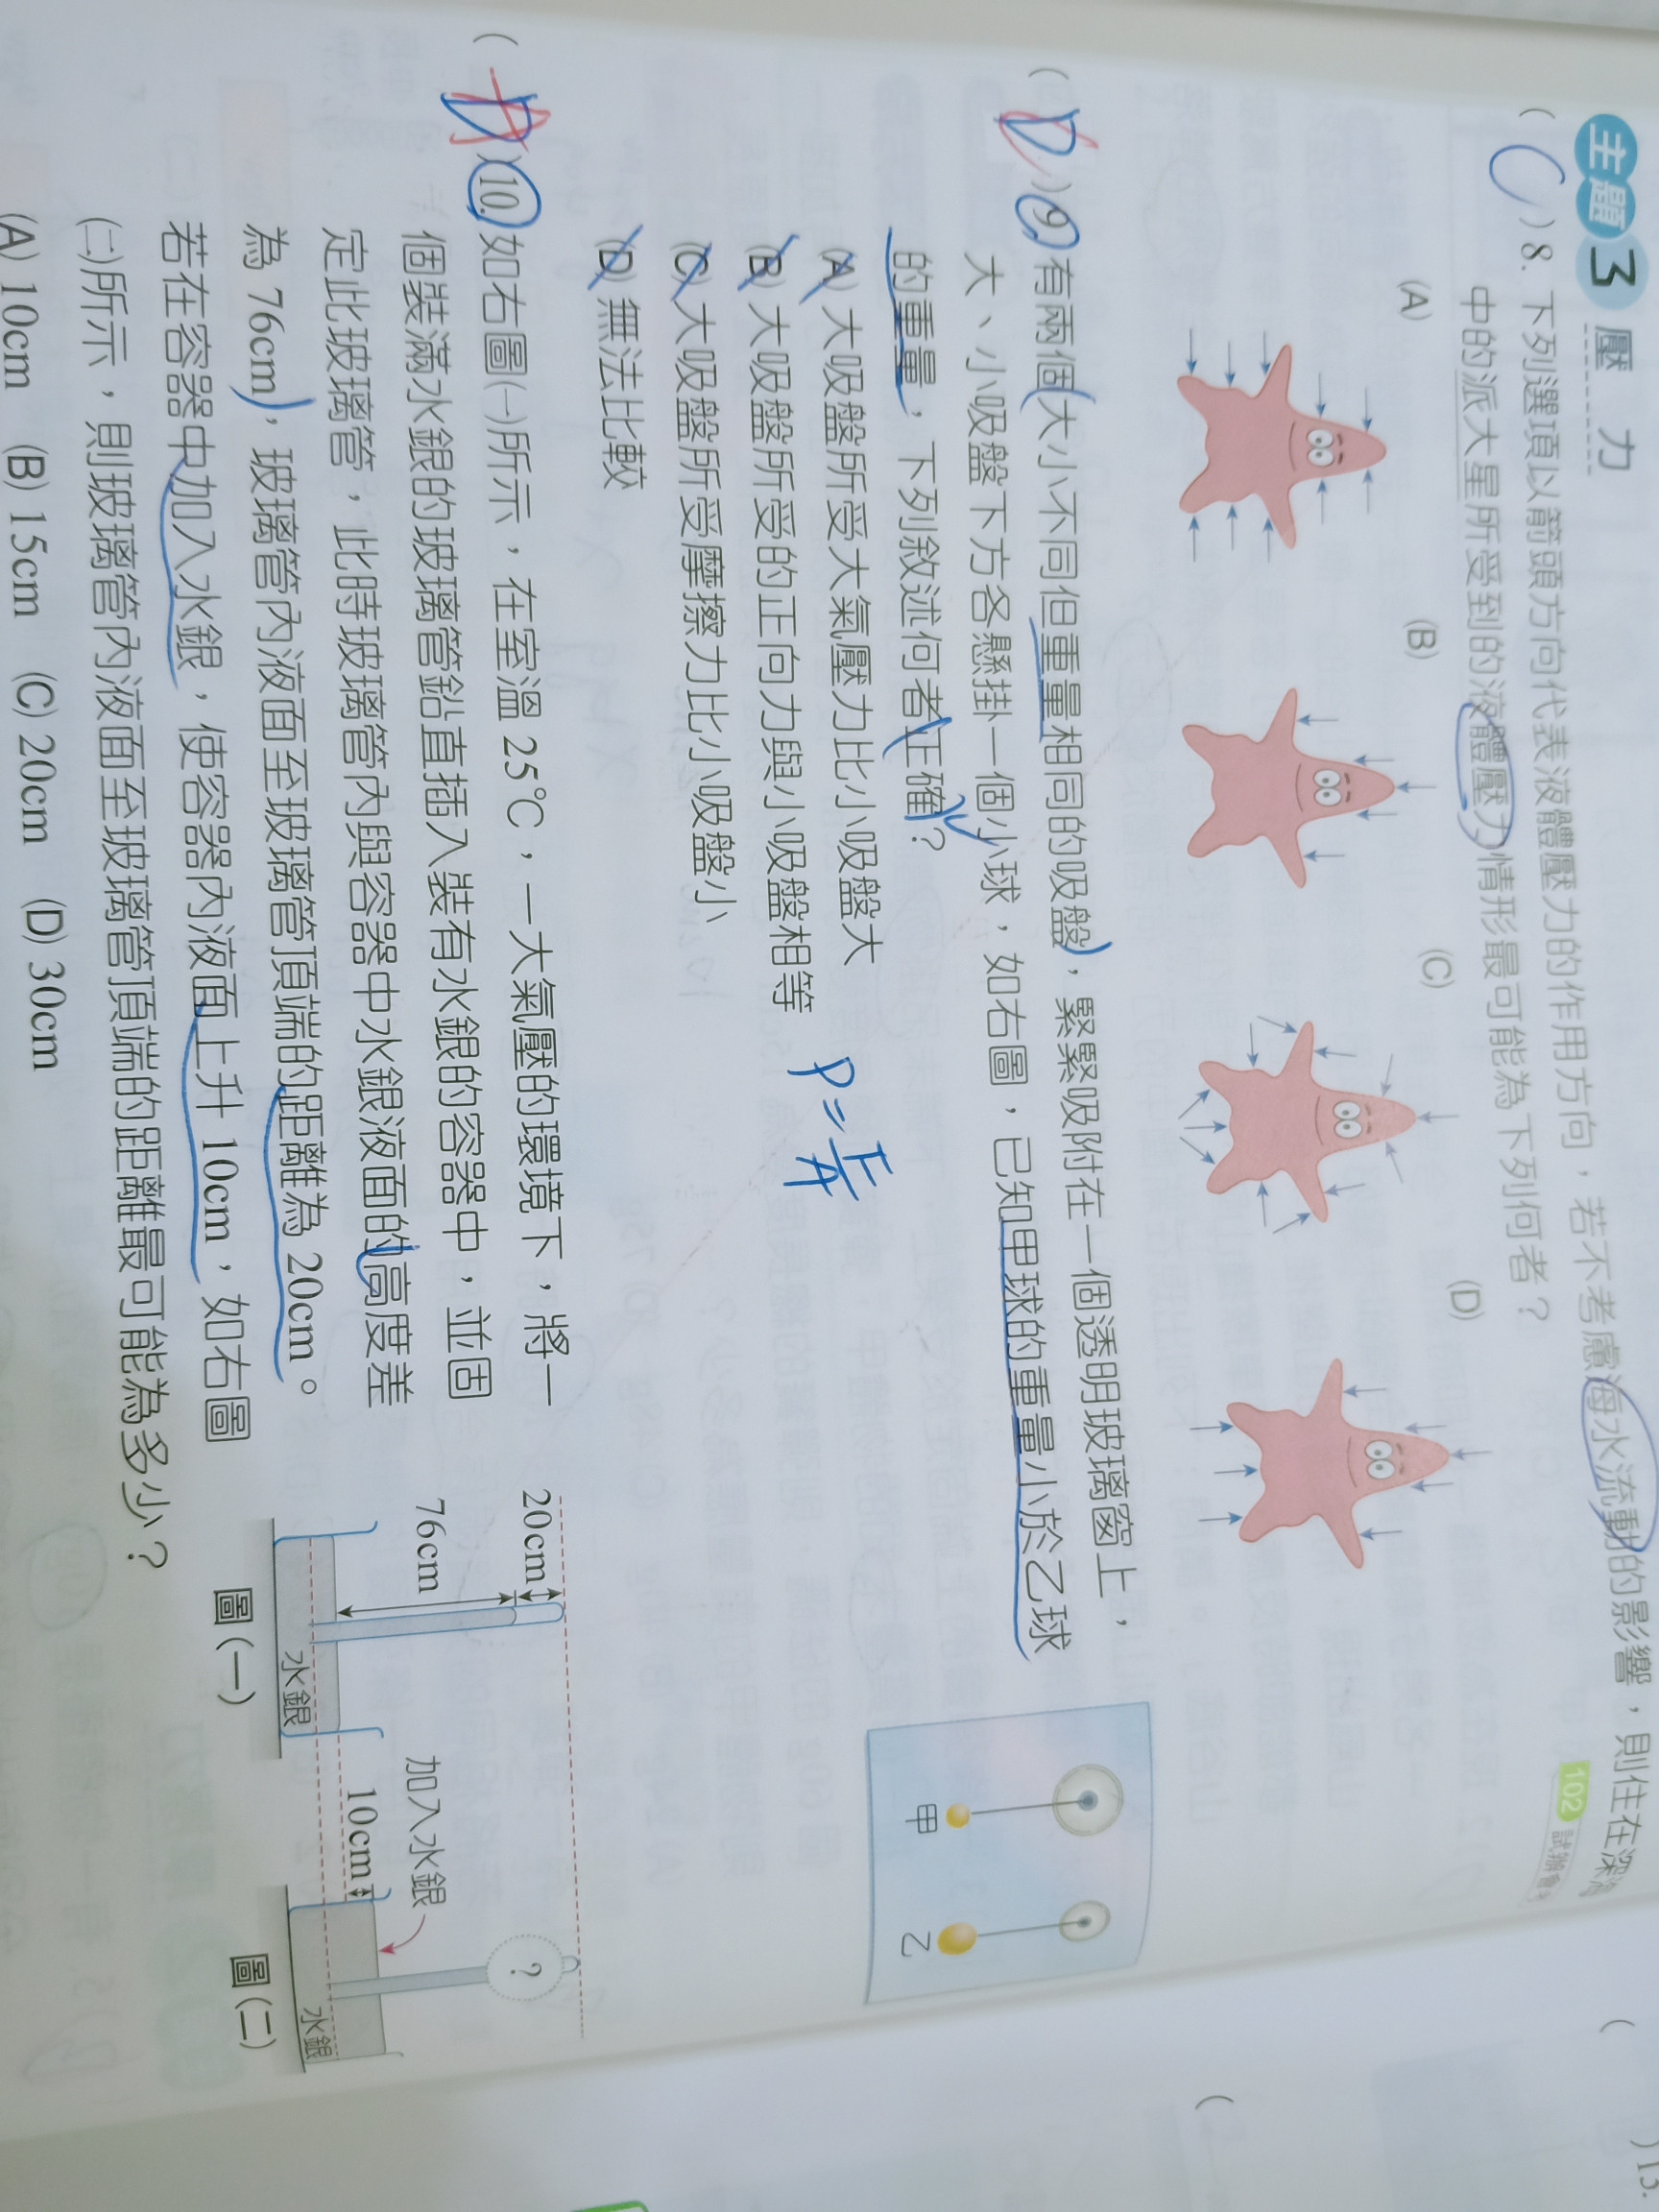 主題3 壓 力
( C )8. 下列選項以箭頭方向代表液體壓力的作用方向，若不考慮海水流動的影響，則住在深海
中的派大星所受到的液體壓力情形最可能為下列何者？
102
試辦會考
(A) (B) (C) (D)
( D )9. 有兩個大小不同但重量相同的吸盤，緊緊吸附在一個透明玻璃窗上，
大、小吸盤下方各懸掛一個小球，如右圖，已知甲球的重量小於乙球
的重量，下列敘述何者正確？
(A) 大吸盤所受大氣壓力比小吸盤大
(B) 大吸盤所受的正向力與小吸盤相等
(C) 大吸盤所受摩擦力比小吸盤小
(D) 無法比較
P=F/A
甲 乙
( )10. 如右圖(一)所示，在室溫 25℃，一大氣壓的環境下，將一
個裝滿水銀的玻璃管鉛直插入裝有水銀的容器中，並固
定此玻璃管，此時玻璃管內與容器中水銀液面的高度差
為 76cm，玻璃管內液面至玻璃管頂端的距離為 20cm。
若在容器中加入水銀，使容器內液面上升 10cm，如右圖
(二)所示，則玻璃管內液面至玻璃管頂端的距離最可能為多少？
(A) 10cm (B) 15cm (C) 20cm (D) 30cm
20cm
76cm
水銀
圖(一)
加入水銀
10cm
?
水銀
圖(二)
)13.